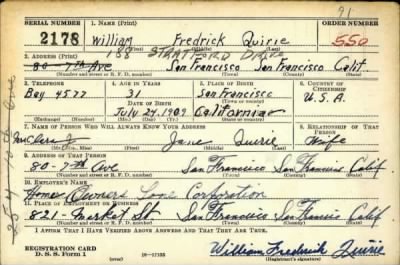 91
SERIAL NUMBER 1. NAME (Print) ORDER NUMBER
2178 William Fredrick Quirie 550
(First) (Middle) (Last)
158 STRATFORD DRIVE
2. ADDRESS (Print)
80 - 7th Ave San Francisco San Francisco Calif.
(Number and street or R. F. D. number) (Town) (County) (State)
3. TELEPHONE 4. AGE IN YEARS 5. PLACE OF BIRTH 6. COUNTRY OF CITIZENSHIP
Bay 4577 31 San Francisco
DATE OF BIRTH (Town or county)
July 24, 1909 California U.S.A.
(Exchange) (Number) (Mo.) (Day) (Yr.) (State or country)
7. NAME OF PERSON WHO WILL ALWAYS KNOW YOUR ADDRESS 8. RELATIONSHIP OF THAT PERSON
Jane Quirie Wife
(Mr., Mrs., Miss) (First) (Middle) (Last)
9. ADDRESS OF THAT PERSON
80 - 7th Ave San Francisco San Francisco Calif
(Number and street or R. F. D. number) (Town) (County) (State)
10. EMPLOYER'S NAME
Home Owners Lone Corporation
11. PLACE OF EMPLOYMENT OR BUSINESS
821 - Market St San Francisco San Francisco Calif
(Number and street or R. F. D. number) (Town) (County) (State)
I AFFIRM THAT I HAVE VERIFIED ABOVE ANSWERS AND THAT THEY ARE TRUE.
REGISTRATION CARD
D. S. S. Form 1 16-17105 William Frederick Quirie
(Registrant's signature)